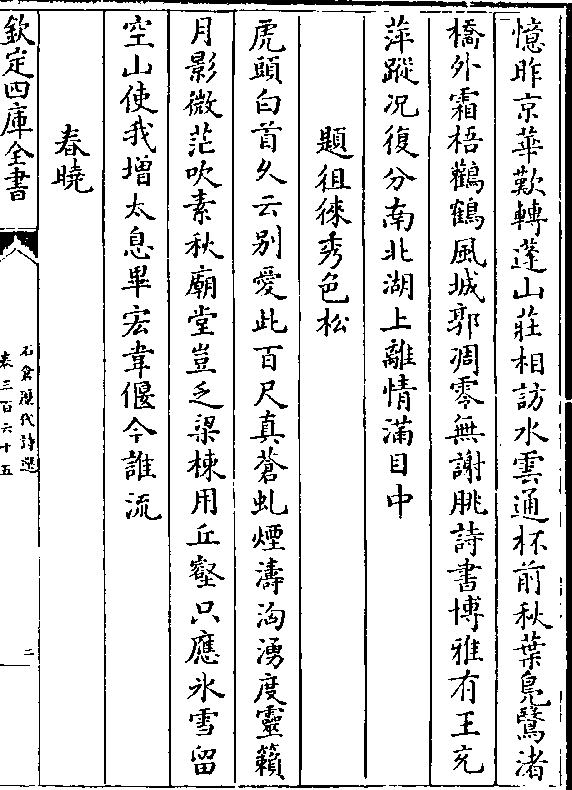 憶昨京華歎轉蓬山莊相訪水雲通杯前秋葉鳬鷖渚
橋外霜梧鸛鶴風城郭凋零無謝朓詩書博雅有王充
萍蹤况復分南北湖上離情滿目中
題徂徠秀色松
虎頭白首久云别愛此百尺真蒼虬煙濤洶湧度靈籟
月影微茫吹素秋廟堂豈乏梁棟用丘壑只應氷雪留
空山使我增太息畢宏韋偃今誰流
春曉
欽定四庫全書
石倉歴代詩選
卷三百六十五
二